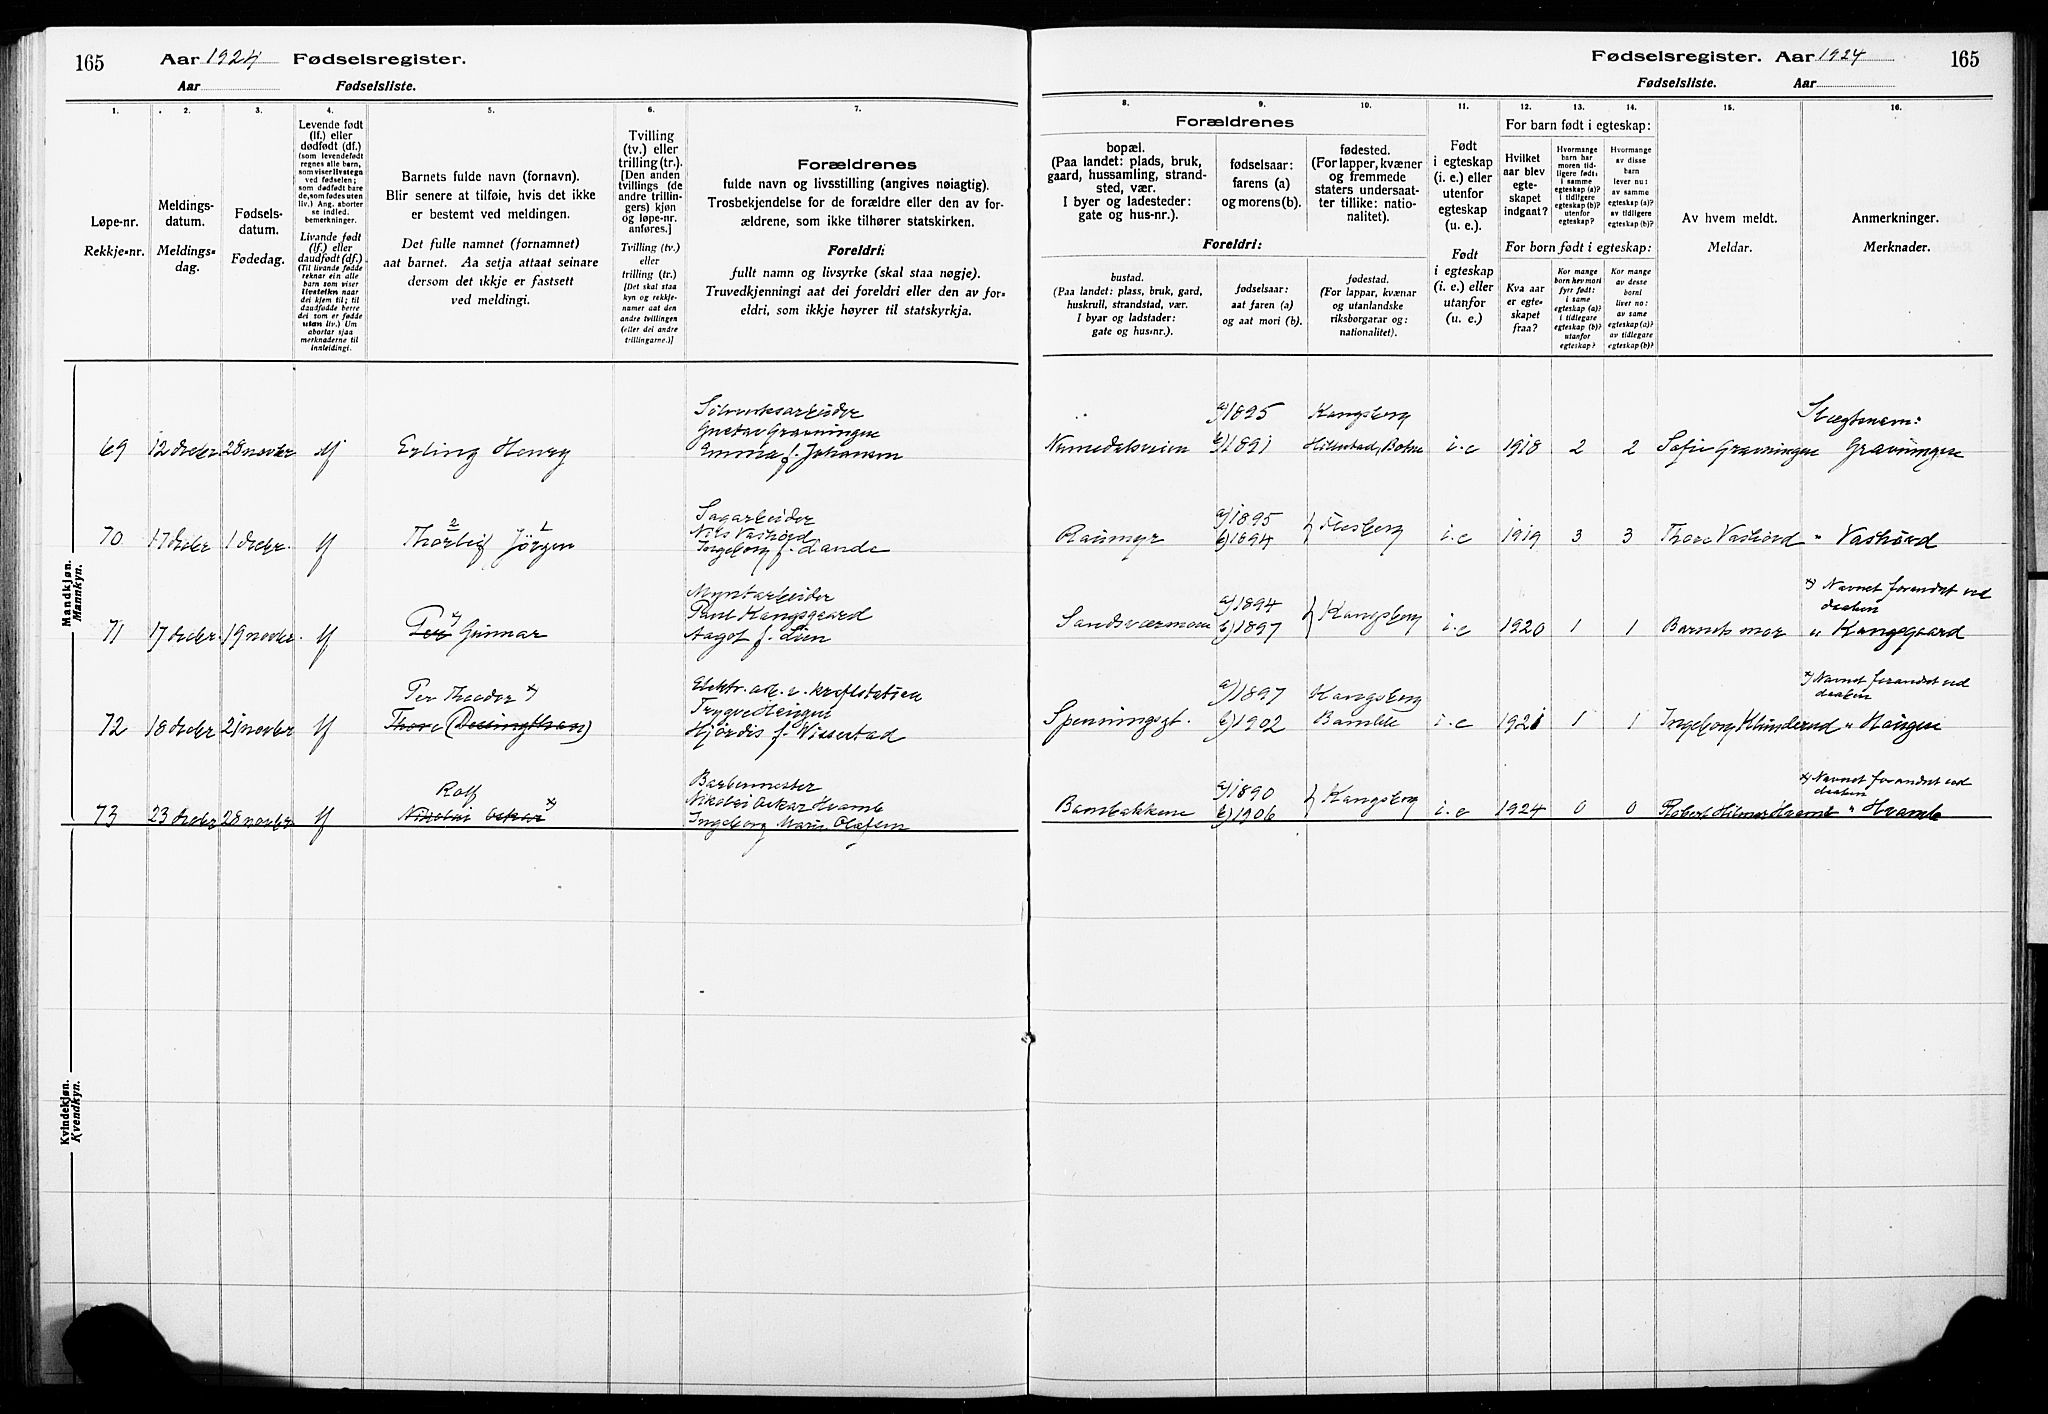 165 Aar 1924 Fødselsregister.
Aar Fødselsliste.
1. 2. 3. 4. 5. 6. 7.
Løpe-nr.
Rekkje-nr.
Meldings-
datum.
Meldings-
dag.
Fødsels-
datum.
Fødedag.
Levende født
(lf.) eller
dødfødt (df.)
(som levendefødt
regnes alle barn,
som viser livstegn
ved fødselen;
som dødfødt bare
de, som fødes uten
liv.) Ang. aborter
se indled.
bemerkninger.
Livande født
(lf.) eller
daudfødt (df.)
(Til livande fødde
reknar ein alle
barn som viser
livsteikn naar
dei kjem til; til
daudfødde berre
dei som er fødde
utan liv.) Um
abortar sjaa
merknaderne til
innleidingi.
Barnets fulde navn (fornavn).
Blir senere at tilføie, hvis det ikke
er bestemt ved meldingen.
Det fulle namnet (fornamnet)
aat barnet. Aa setja attaat seinare
dersom det ikkje er fastsett
ved meldingi.
Tvilling
(tv.) eller
trilling (tr.).
[Den anden
tvillings (de
andre trillin-
gers) kjøn
og løpe-nr.
anføres.]
Tvilling (tv.)
eller
trilling (tr.)
[Det skal staa
kyn og rekkje-
namer aat den
andre tvillingen
(eller dei andre
trillingarne.)]
Forældrenes
fulde navn og livsstilling (angives nøiagtig).
Trosbekjendelse for de forældre eller den av for-
ældrene, som ikke tilhører statskirken.
Foreldri:
fullt namn og livsyrke (skal staa nøgje).
Truvedkjenningi aat dei foreldri eller den av for-
eldri, som ikkje høyrer til statskyrkja.
Mandkjøn.
Mannkyn.
Sølvverksarbeider
Gustav Gravningen
69 12 decbr. 28 novbr. lf Erling Henry Emma f. Johansen
Sagarbeider
2 1 Nils Vashovd
70 17 decbr 1 decbr. lf Thorleif Jörgen Ingeborg f. Lande
Myntarbeider
x) Paul Kongsgaard
71 17 decbr. 19 novbr. lf Per Gunnar Aagot f. Lien
Per Theodor x)
Trygve Haugen
72 18 decbr 21 novbr lf Thore Hjördis f. Wissestad
Barbermester
Rolf Nikolai Oskar Hvamb
73 23 decbr 28 novbr. lf Nikolai Oskar x) Ingeborg Marie Olafsen
Kvindekjøn.
Kvendkyn.
Fødselsregister. Aar 1924 165
Fødselsliste. Aar
8. 9. 10. 11. 12. 13. 14. 15. 16.
Forældrenes
bopæl.
(Paa landet: plads, bruk,
gaard, hussamling, strand-
sted, vær.
I byer og ladesteder:
gate og hus-nr.).
fødselsaar:
farens (a)
og morens (b).
fødested.
(For lapper, kvæner
og fremmede
staters undersaat-
ter tillike: natio-
nalitet).
Foreldri:
bustad.
(Paa landet: plass, bruk, gard,
huskrull, strandstad, vær.
I byar og ladstader:
gate og hus-nr.).
fødselsaar:
aat faren (a)
og aat mori (b).
fødestad.
(For lappar, kvænar
og utanlandske
riksborgarar og:
nationalitet).
Født
i egteskap
(i. e.) eller
utenfor
egteskap
(u. e.).
Født
i egteskap
(i. e.) eller
utanfor
(u. e.).
For barn født i egteskap:
Hvilket
aar blev
egte-
skapet
indgaat?
Hvormange
barn har
moren tid-
ligere født:
i samme
egteskap (a)?
i tidligere
egteskap (b)?
utenfor
egteskap?
Hvormange
av disse
barn
lever nu:
av samme
egteskap (a)?
av tidligere
egteskap (b)?
For born født i egteskap:
Kva aar
er egte-
skapet
fraa?
Kor mange
born hev mori
fyrr født:
i same
egteskap (a)?
i tidlegare
egteskap (b)?
utanfor
egteskap?
Kor mange
av desse
borni
liver no:
av same
egteskap (a)?
av tidlegare
egteskap (b)?
Av hvem meldt.
Meldar.
Anmerkninger.
Merknader.
a) 1895 Kongsberg Slegtnavn:
Numedalsveien b) 1891 Hillestad, Botne i.e 1918 2 2 Sofie Gravningen Gravningen
a) 1895
Raumyr b) 1894 } Flesberg i.e 1919 3 3 Thore Vashovd " Vashovd
a) 1894 x) Navnet forandret ved
daaben
Sandsværmoen b) 1897 } Kongsberg i.e 1920 1 1 Barnets mor " Kongsgaard
a) 1897 Kongsberg x) Navnet forandret ved
daaben
Spenningsgt. b) 1902 Bamble i.e 1921 1 1 Ingeborg Klunderud " Haugen
a) 1890 x) Navnet forandret ved
daaben
Bambakkene b) 1906 } Kongsberg i.e 1924 0 0 Robert Hilmar Hvamb " Hvamb